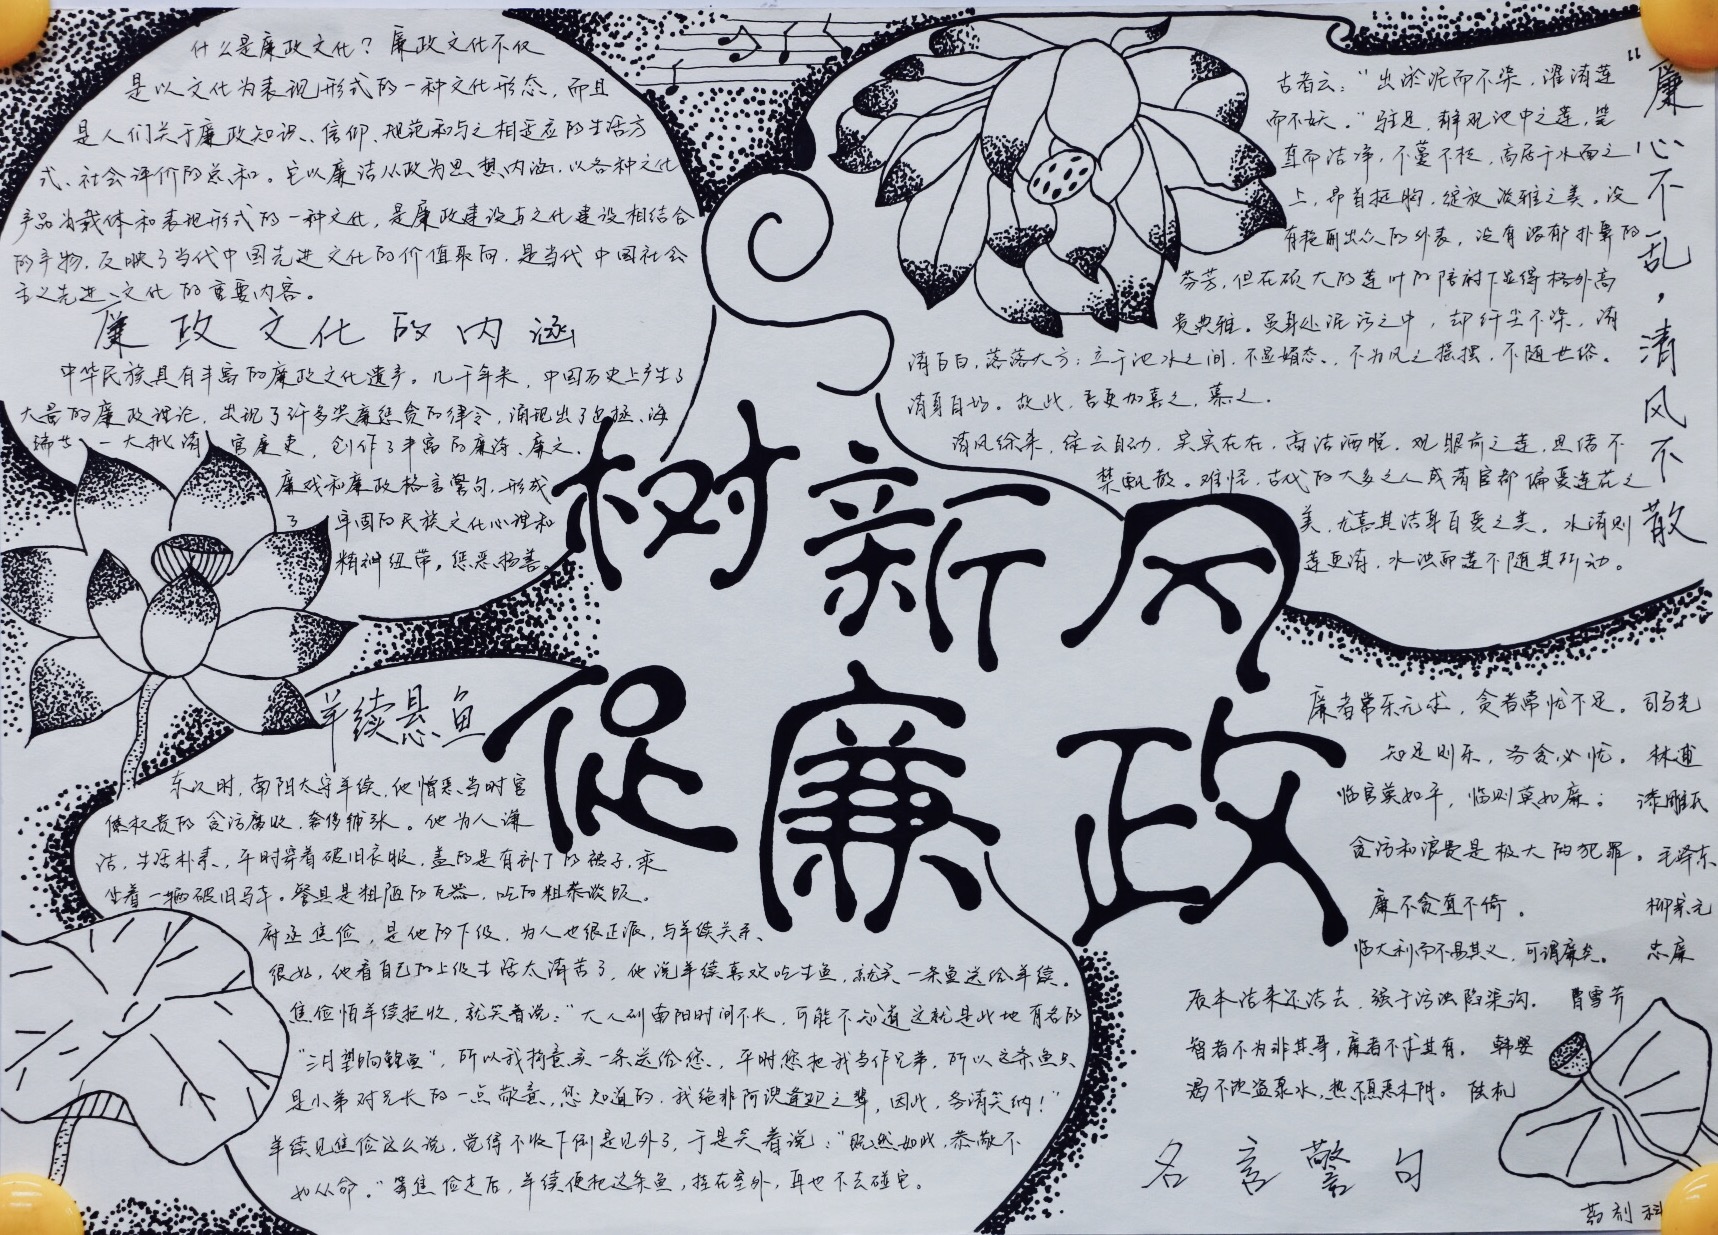 什么是廉政文化？廉政文化不仅
是以文化为表现形式的一种文化形态，而且
是人们关于廉政知识、信仰、规范和与之相适应的生活方
式、社会评价的总和。它以廉洁从政为思想内涵，以各种文化
产品为载体和表现形式的一种文化，是廉政建设与文化建设相结合
的产物，反映了当代中国先进文化的价值取向，是当代中国社会
主义先进文化的重要内容。
廉政文化的内涵
中华民族具有丰富的廉政文化遗产。几千年来，中国历史上产生了
大量的廉政理论，出现了许多奖廉惩贪的律令，涌现出了包拯、海
瑞等一大批清官廉吏，创作了丰富的廉诗、廉文、
廉戏和廉政格言警句，形成
了牢固的民族文化心理和
精神纽带。惩恶扬善。
树新风
促廉政
"廉心不乱，清风不散
古者云："出淤泥而不染，濯清莲
而不妖。"驻足，静观池中之莲，茎
直而洁净，不蔓不枝，高居于水面之
上，昂首挺胸，绽放淡雅之美。没
有艳丽出众的外表，没有浓郁扑鼻的
芬芳，但在硕大的莲叶的陪衬下显得格外高
贵典雅。虽身处泥污之中，却纤尘不染，清
清白白，落落大方；立于池水之间，不显媚态，不为风之摇摆，不随世俗。
清身自好。故此，吾更加喜之，慕之。
清风徐来，绿云自动，实实在在，高洁洒脱，观眼前之莲，思绪不
禁飘散。难怪，古代的大多文人或清官都偏爱莲花之
美，尤喜其洁身自爱之美。水清则
莲更清，水浊而莲不随其所动。
羊续悬鱼
东汉时，南阳太守羊续，他憎恶当时官
僚权贵的贪污腐败，奢侈铺张。他为人谦
洁，生活朴素，平时穿着破旧衣服，盖的是有补丁的被子，乘
坐着一辆破旧马车。餐具是粗陋的瓦器，吃的粗茶淡饭。
府丞焦俭，是他的下级，为人也很正派，与羊续关系
很好，他看自己的上级生活太清苦了，他说羊续喜欢吃生鱼，就买一条鱼送给羊续。
焦俭怕羊续拒收，就笑着说："大人到南阳时间不长，可能不知道这就是此地有名的
"三月望饷鲤鱼"，所以我特意买一条送给您，平时您把我当作兄弟，所以这条鱼只
是小弟对兄长的一点敬意，您知道的，我绝非阿谀逢迎之辈，因此，务请笑纳！"
羊续见焦俭这么说，觉得不收下倒是见外了，于是笑着说："既然如此，恭敬不
如从命。"等焦俭走后，羊续便把这条鱼，挂在室外，再也不去碰它。
廉者常乐无求，贪者常忧不足。 司马光
知足则乐，务贪必忧。 林逋
临官莫如平，临财莫如廉； 漆雕氏
贪污和浪费是极大的犯罪。 毛泽东
廉不贪直不倚。 柳宗元
临大利而不易其义，可谓廉矣。 忠廉
质本洁来还洁去，强于污浊陷渠沟。 曹雪芹
智者不为非其事，廉者不求其有。 韩婴
渴不饮盗泉水，热不息恶木阴。 陆机
名言警句
药剂科